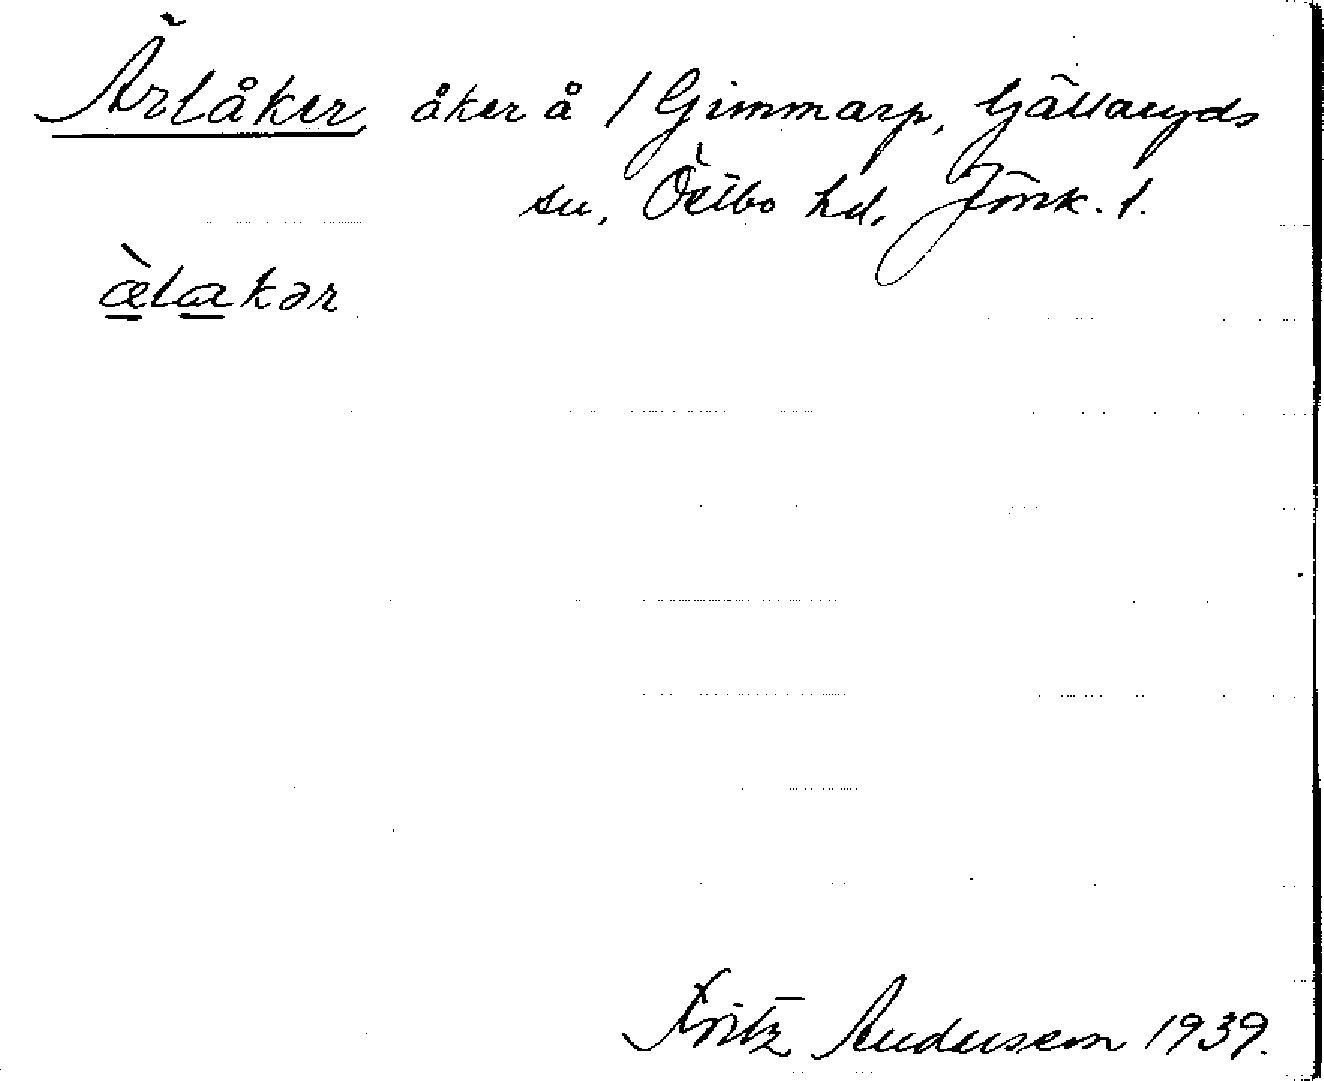 Ärlåker, åker å / Gimmarp, Gällaryds
sn, Östbo hd, Jönk. l.
æ̀lakər
Fritz Andersson 1939.